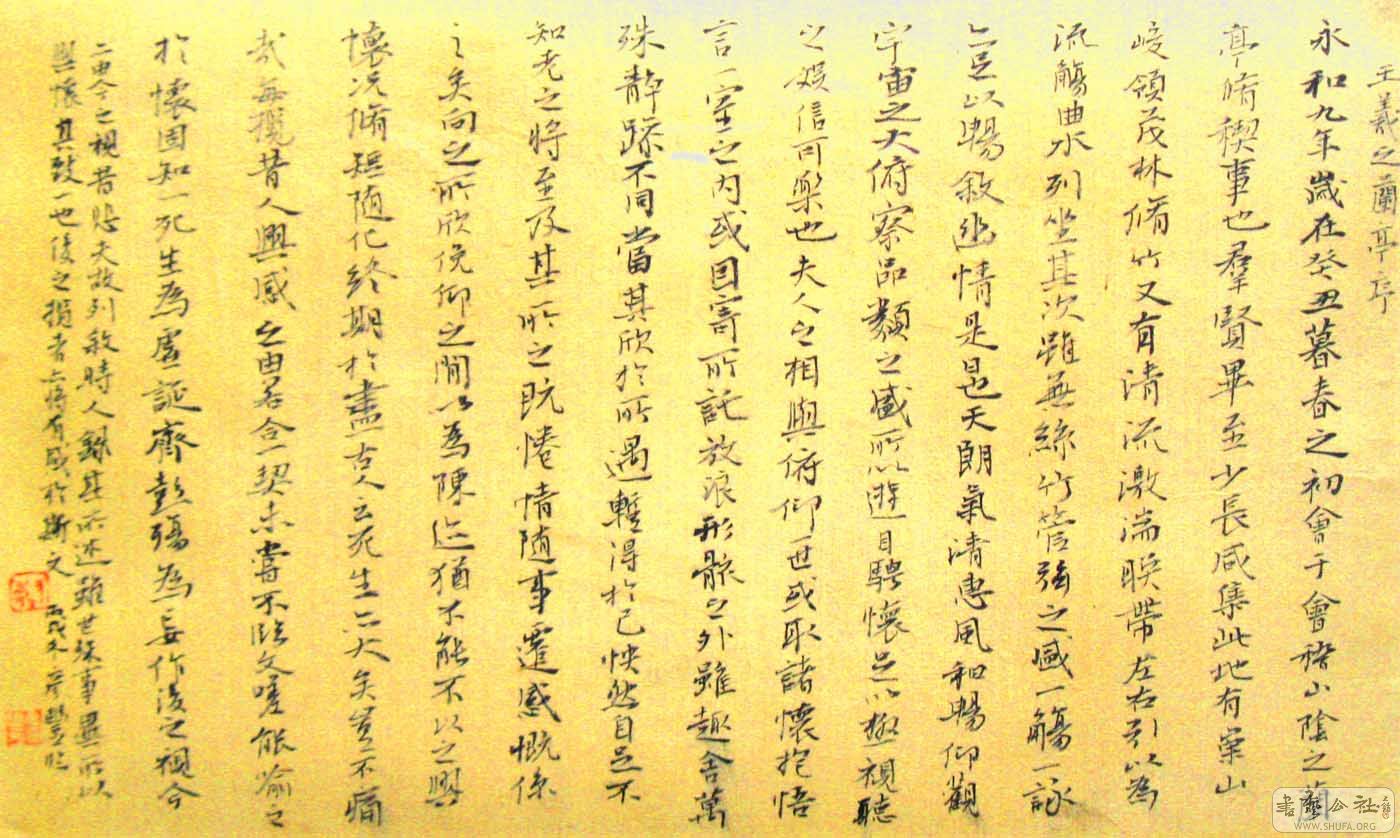 王羲之蘭亭序
永和九年歲在癸丑暮春之初會于會稽山陰之蘭
亭脩禊事也羣賢畢至少長咸集此地有崇山
峻領茂林脩竹又有清流激湍暎帶左右引以為
流觴曲水列坐其次雖無絲竹管弦之盛一觴一詠
亦足以暢敘幽情是日也天朗氣清惠風和暢仰觀
宇宙之大俯察品類之盛所以遊目騁懷足以極視聽
之娛信可樂也夫人之相與俯仰一世或取諸懷抱悟
言一室之內或因寄所託放浪形骸之外雖趣舍萬
殊靜躁不同當其欣於所遇暫得於己怏然自足不
知老之將至及其所之既惓情隨事遷感慨係
之矣向之所欣俛仰之間以為陳迹猶不能不以之興
懷況脩短隨化終期於盡古人云死生亦大矣豈不痛
哉每攬昔人興感之由若合一契未嘗不臨文嗟能喻之
於懷固知一死生為虛誕齊彭殤為妄作後之視今
亦由今之視昔悲夫故列敘時人錄其所述雖世殊事異所以
興懷其致一也後之攬者亦將有感於斯文 丙戌冬
書藝公社
WWW.SHUFA.ORG